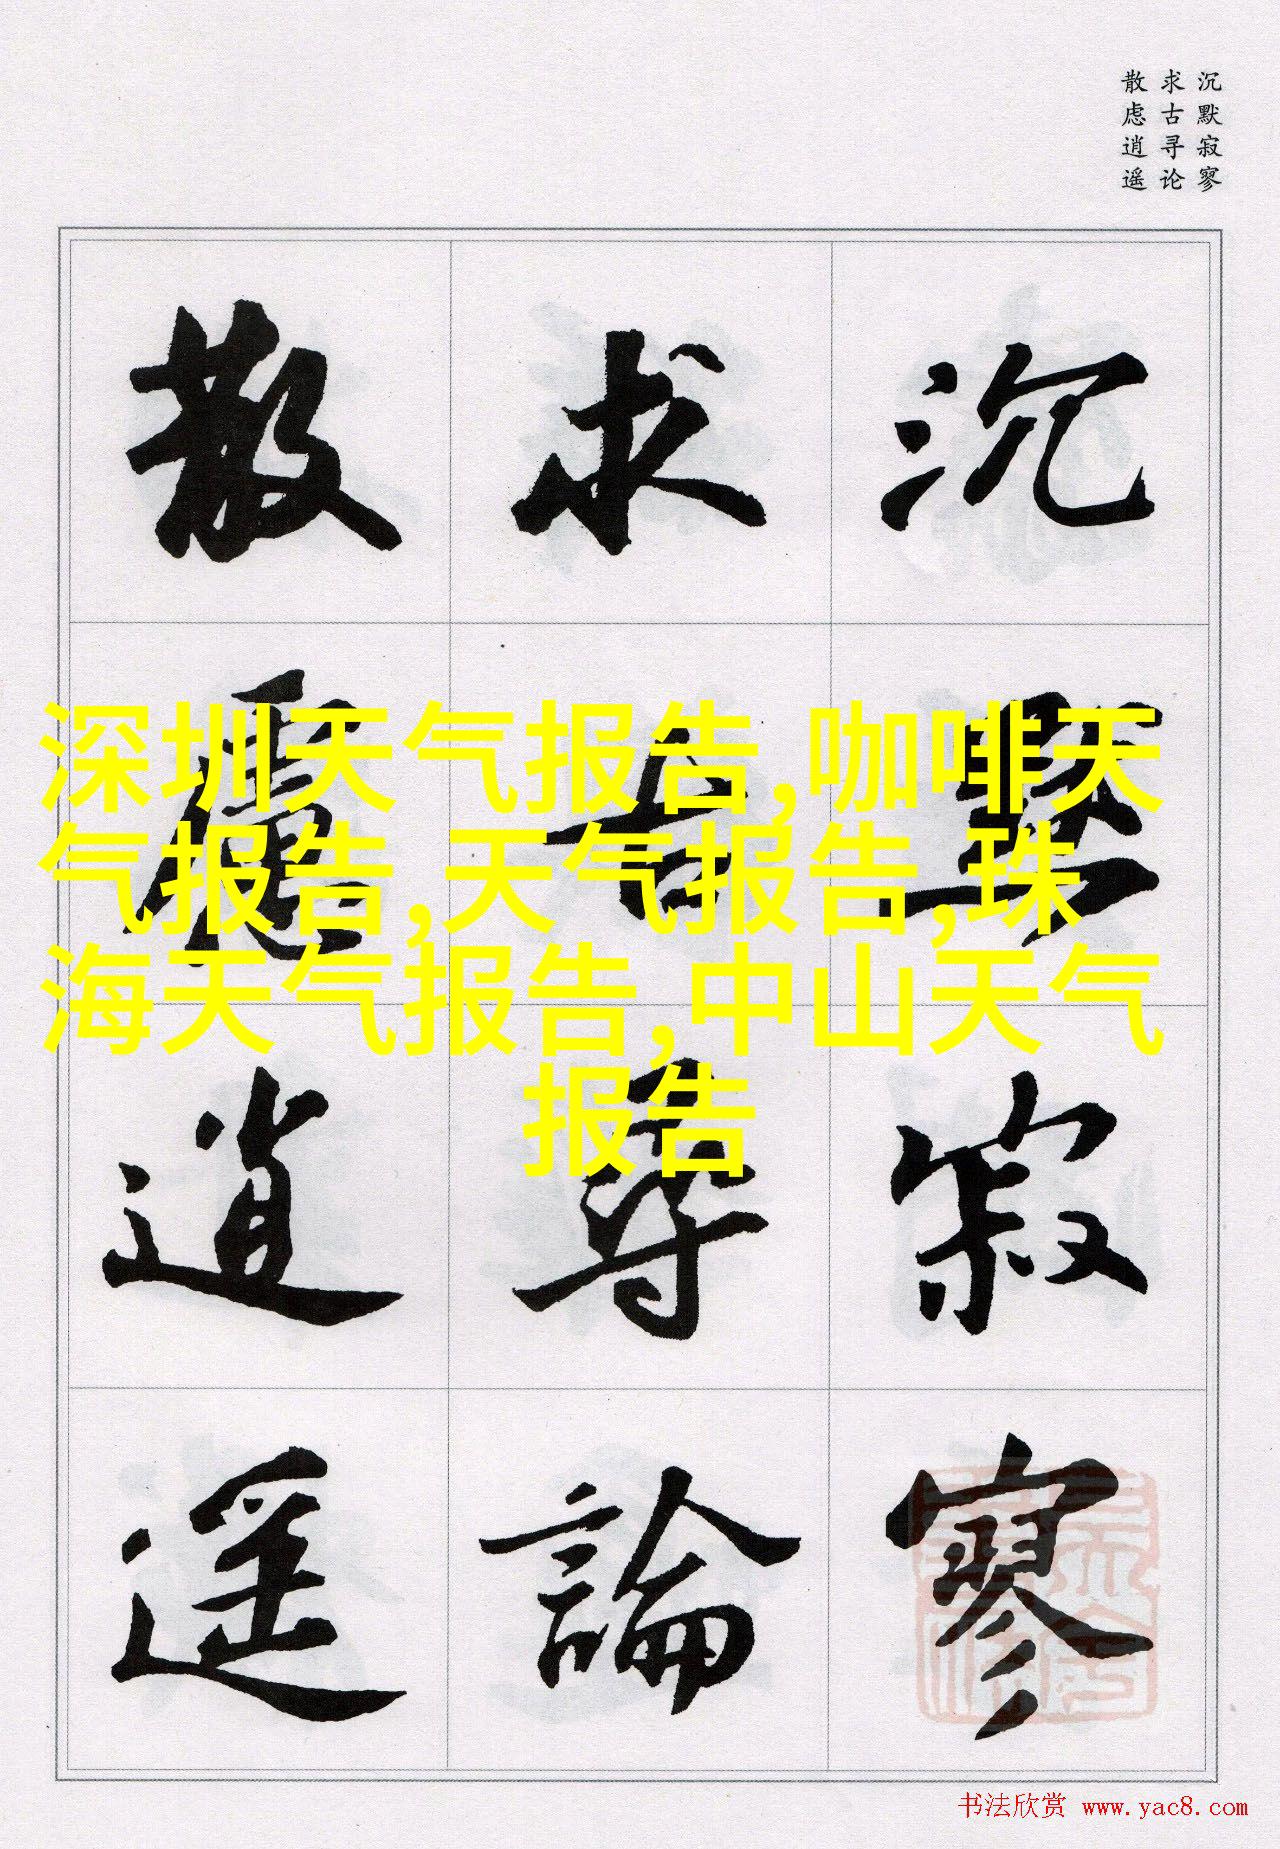 沉默寂寥
求古寻论
散虑逍遥
沉默寂寥
求古尋論
散慮逍遥
深圳天气报告,咖啡天
气报告,天气报告,珠
海天气报告,中山天气
报告
书法欣赏 www.yac8.com